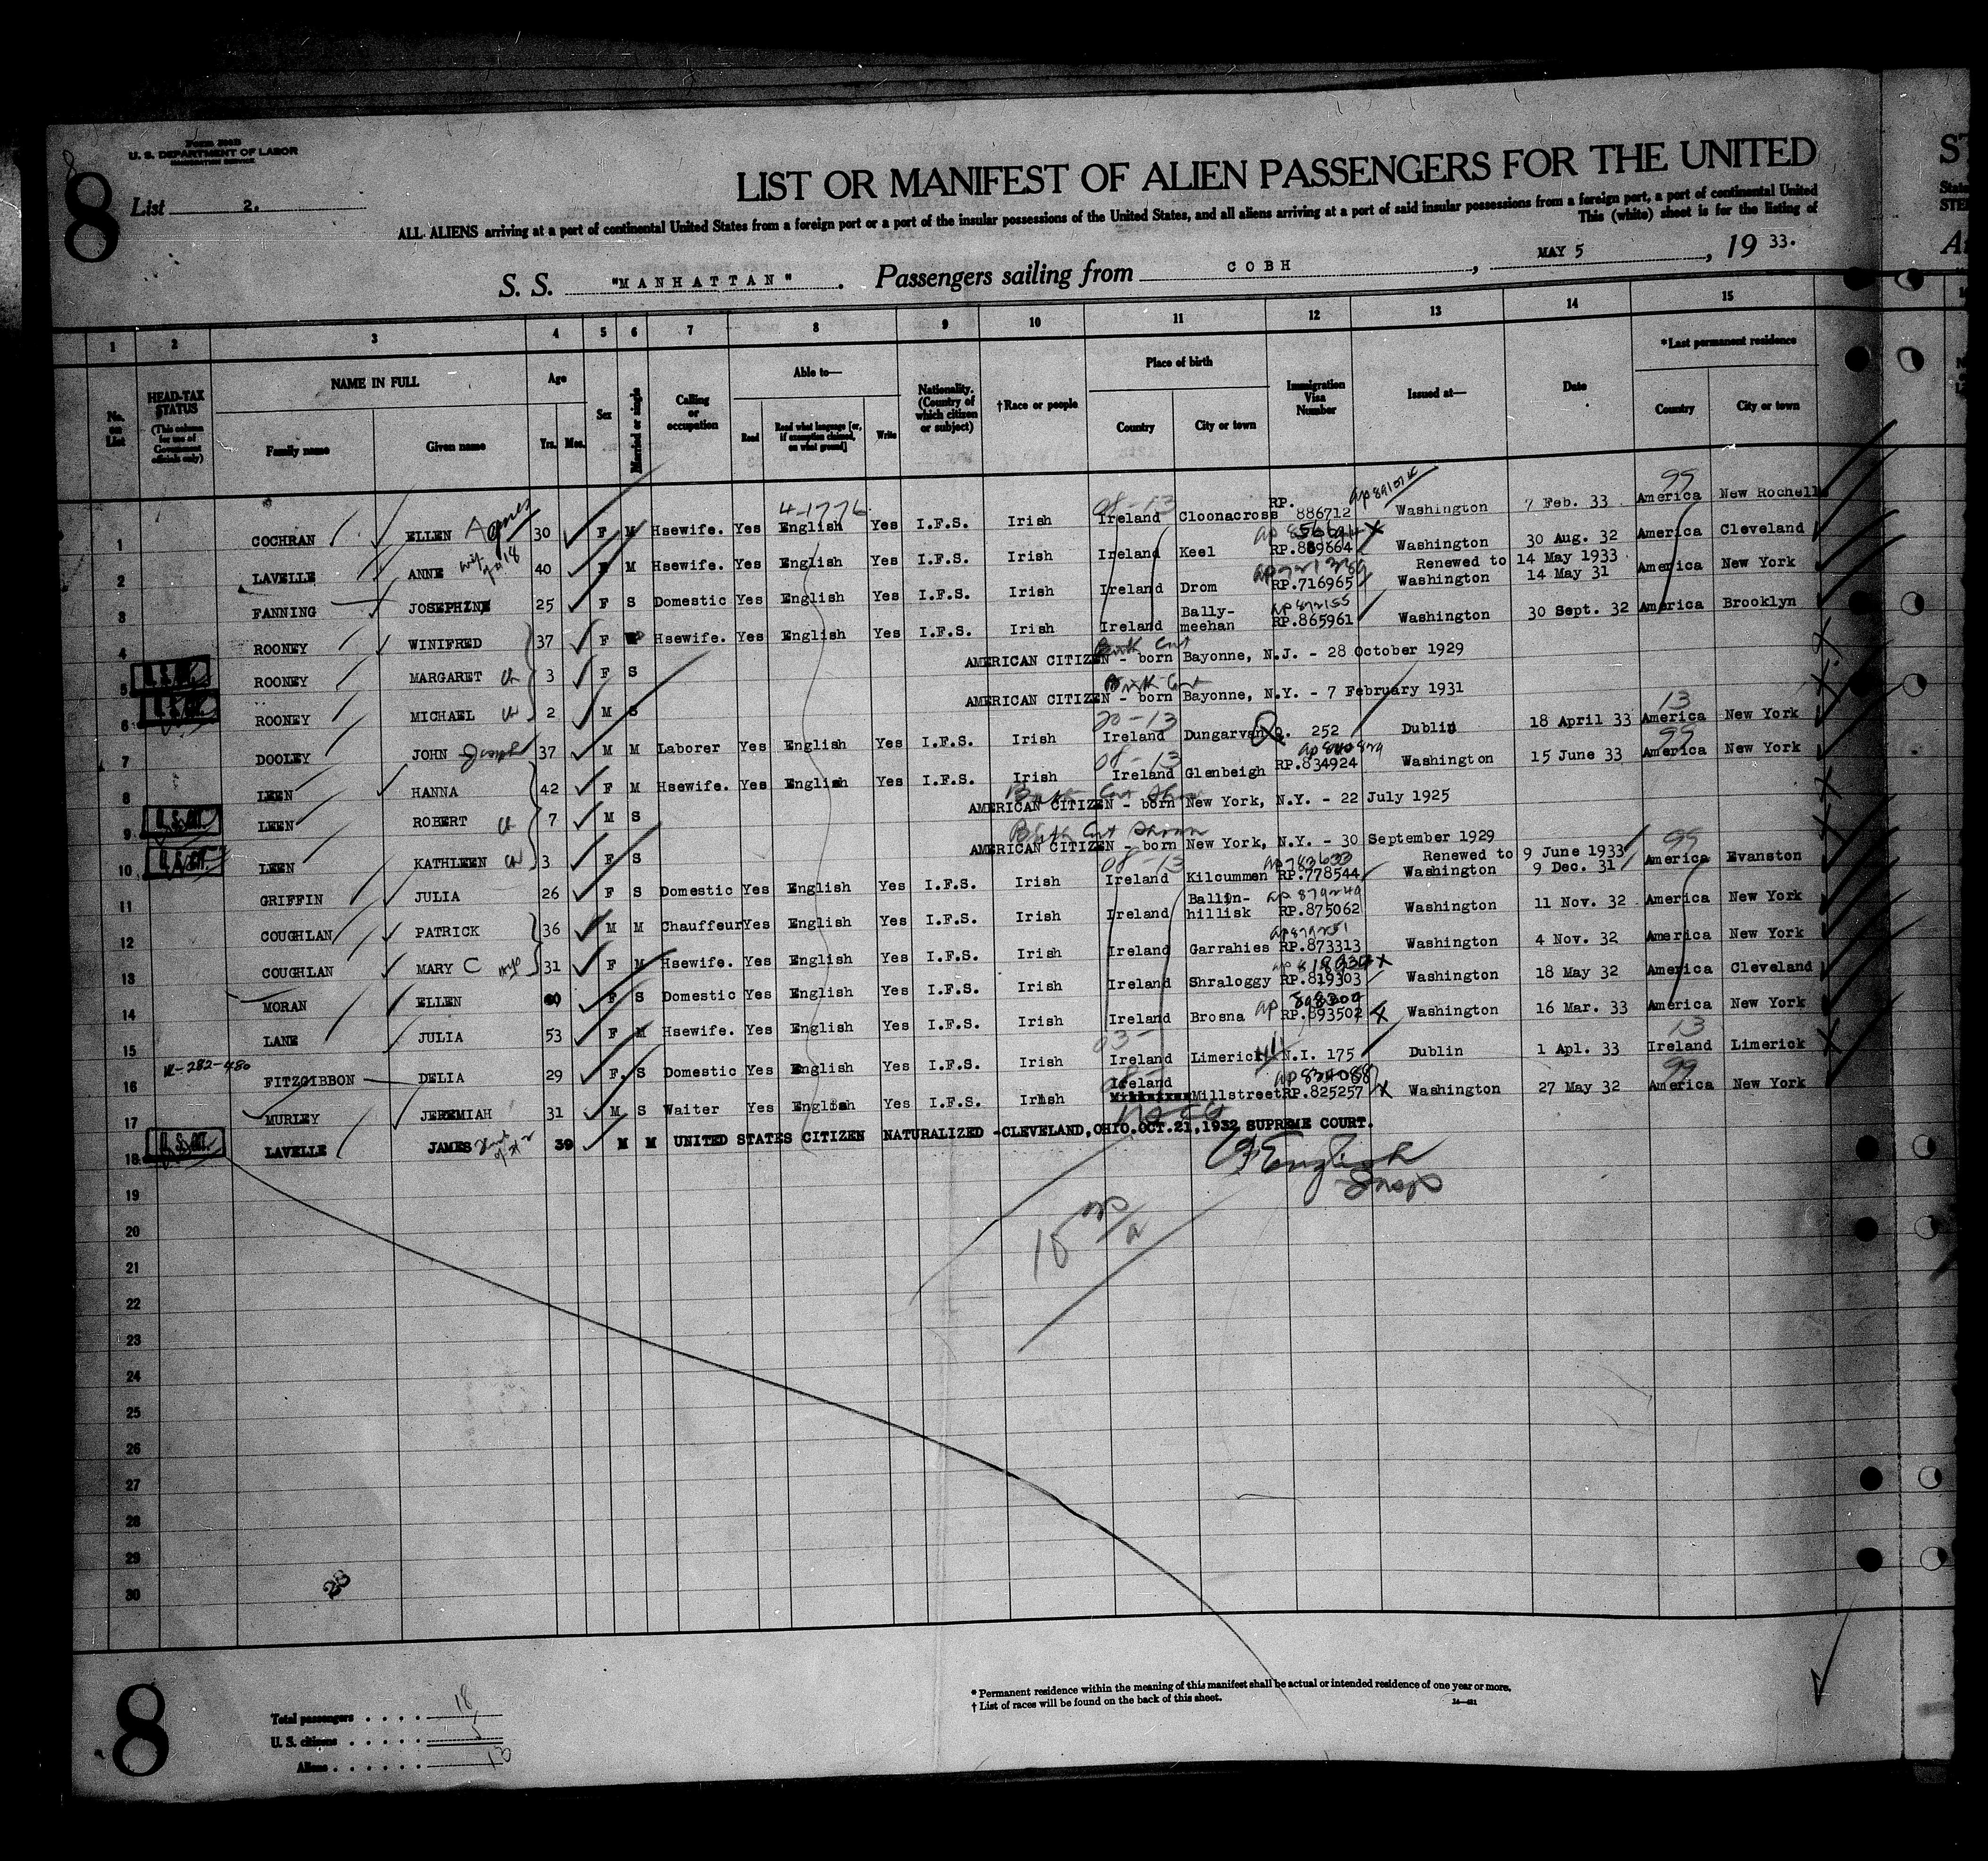 Form 500B
U. S. DEPARTMENT OF LABOR
IMMIGRATION SERVICE
8
List 2.
LIST OR MANIFEST OF ALIEN PASSENGERS FOR THE UNITED
ALL ALIENS arriving at a port of continental United States from a foreign port or a port of the insular possessions of the United States, and all aliens arriving at a port of said insular possessions from a foreign port, a port of continental United
This (white) sheet is for the listing of
S. S. "MANHATTAN". Passengers sailing from COBH, MAY 5, 19 33.
1 2 3 4 5 6 7 8 9 10 11 12 13 14 15
No. on List
HEAD-TAX STATUS (This column for use of Government officials only)
NAME IN FULL Family name Given name
Age Yrs. Mos.
Sex
Married or single
Calling or occupation
Able to— Read Read what language [or, if exemption claimed, on what ground] Write
Nationality. (Country of which citizen or subject)
†Race or people
Place of birth Country City or town
Immigration Visa Number
Issued at—
Date
*Last permanent residence Country City or town
1 COCHRAN ELLEN Agnes 30 F M Hsewife. Yes English Yes I.F.S. Irish Ireland Cloonacross RP. 886712 Washington 7 Feb. 33 America New Rochelle
2 LAVELLE ANNE 40 F M Hsewife. Yes English Yes I.F.S. Irish Ireland Keel RP.889664 Washington 30 Aug. 32 America Cleveland
3 FANNING JOSEPHINE 25 F S Domestic Yes English Yes I.F.S. Irish Ireland Drom RP.716965 Renewed to 14 May 1933 Washington 14 May 31 America New York
4 ROONEY WINIFRED 37 F Hsewife. Yes English Yes I.F.S. Irish Ireland Bally-meehan RP.865961 Washington 30 Sept. 32 America Brooklyn
5 ROONEY MARGARET ch 3 F S AMERICAN CITIZEN - born Bayonne, N.J. - 28 October 1929
6 ROONEY MICHAEL ch 2 M S AMERICAN CITIZEN - born Bayonne, N.Y. - 7 February 1931
7 DOOLEY JOHN Joseph 37 M M Laborer Yes English Yes I.F.S. Irish Ireland Dungarvan Q. 252 Dublin 18 April 33 America New York
8 LEEN HANNA 42 F M Hsewife. Yes English Yes I.F.S. Irish Ireland Glenbeigh RP.834924 Washington 15 June 33 America New York
9 U.S. CIT. LEEN ROBERT ch 7 M S AMERICAN CITIZEN - born New York, N.Y. - 22 July 1925
10 U.S. CIT. LEEN KATHLEEN ch 3 F S Birth Cert Shown AMERICAN CITIZEN - born New York, N.Y. - 30 September 1929
11 GRIFFIN JULIA 26 F S Domestic Yes English Yes I.F.S. Irish Ireland Kilcummen RP.778544 Renewed to 9 June 1933 Washington 9 Dec. 31 America Evanston
12 COUGHLAN PATRICK 36 M M Chauffeur Yes English Yes I.F.S. Irish Ireland Ballin-hillisk RP.875062 Washington 11 Nov. 32 America New York
13 COUGHLAN MARY C 31 F M Hsewife. Yes English Yes I.F.S. Irish Ireland Garrahies RP.873313 Washington 4 Nov. 32 America New York
14 MORAN ELLEN F S Domestic Yes English Yes I.F.S. Irish Ireland Shraloggy RP.819303 Washington 18 May 32 America Cleveland
15 LANE JULIA 53 F M Hsewife. Yes English Yes I.F.S. Irish Ireland Brosna RP.893502 Washington 16 Mar. 33 America New York
16 FITZGIBBON DELIA 29 F. S Domestic Yes English Yes I.F.S. Irish Ireland Limerick N.I. 175 Dublin 1 Apl. 33 Ireland Limerick
17 MURLEY JEREMIAH 31 M S Waiter Yes English Yes I.F.S. Irish Ireland Millstreet RP.825257 Washington 27 May 32 America New York
18 U.S. CIT. LAVELLE JAMES 39 M M UNITED STATES CITIZEN NATURALIZED -CLEVELAND,OHIO.OCT.21,1932 SUPREME COURT.
English
Insp
19
20
21
22
23
24
25
26
27
28
29
30
8
Total passengers . . . . 18
U. S. citizens . . . . . 5
Aliens . . . . . . 13
* Permanent residence within the meaning of this manifest shall be actual or intended residence of one year or more.
† List of races will be found on the back of this sheet.